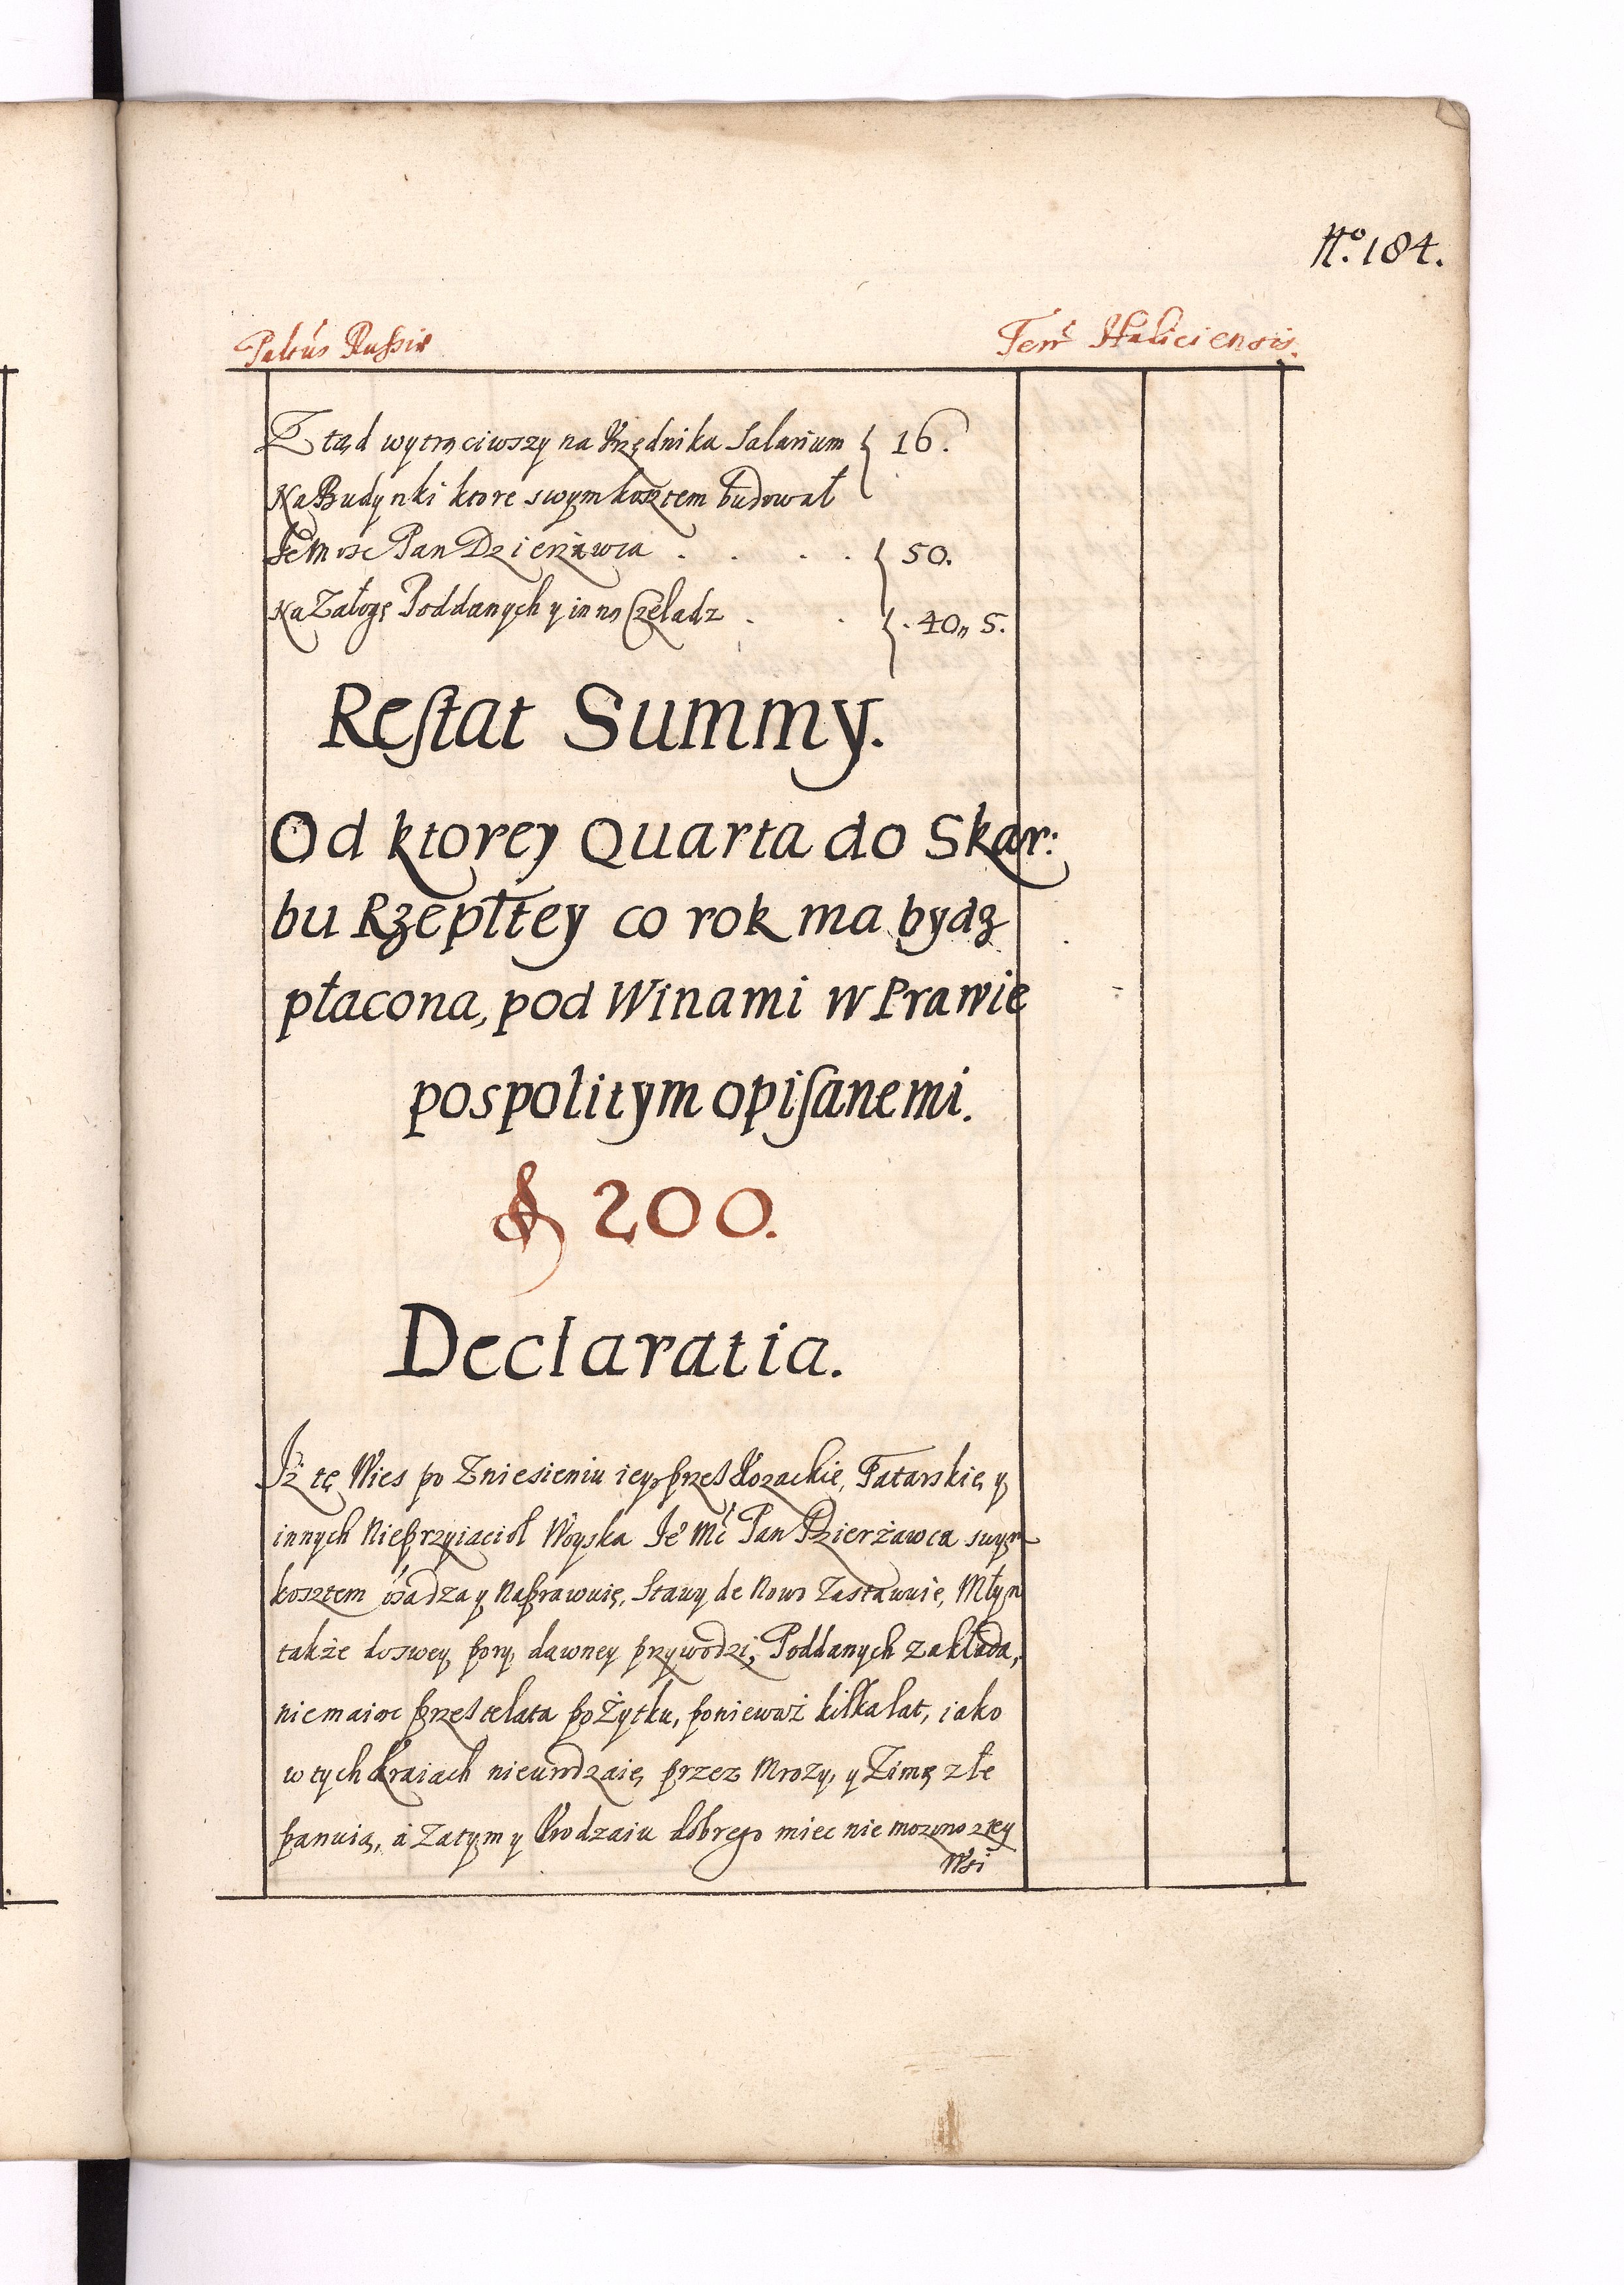 No. 184.
Paltus Russiæ
Terræ Haliciensis.
Ztąd wytrąciwszy na Urzędnika Salarium { 16.
Na Budynki ktore swym kosztem budował
Je Mosc Pan Dzierżawca . . . . { 50.
Na Załogę Poddanych y inną Czeladz . . { . 40,, 5.
Restat Summy.
Od ktorey Quarta do Skar:
bu Rzepłtey co rok ma bydz
płacona, pod Winami w Prawie
pospolitym opisanemi.
f 200.
Declaratia.
Iż tę Wies po Zniesieniu iey przes Kozackie, Tatarskie, y
innych Nieprzyiacioł Woyska Je° Mć Pan Dzierżawca swym
kosztem osadza y Naprawuię, Stawy de Nowo Zastawuie, Młyn
także do swey pory, dawney przywodzi, Poddanych zakłada,
nie maiąc przes te lata pożytku, ponieważ kilka lat, iako
w tych Kraiach nieurodzaie, przez Mrozy, y Zimę złe
panuią, a Zatym y Urodzaiu dobrego miec nie mozono z tey
Wsi